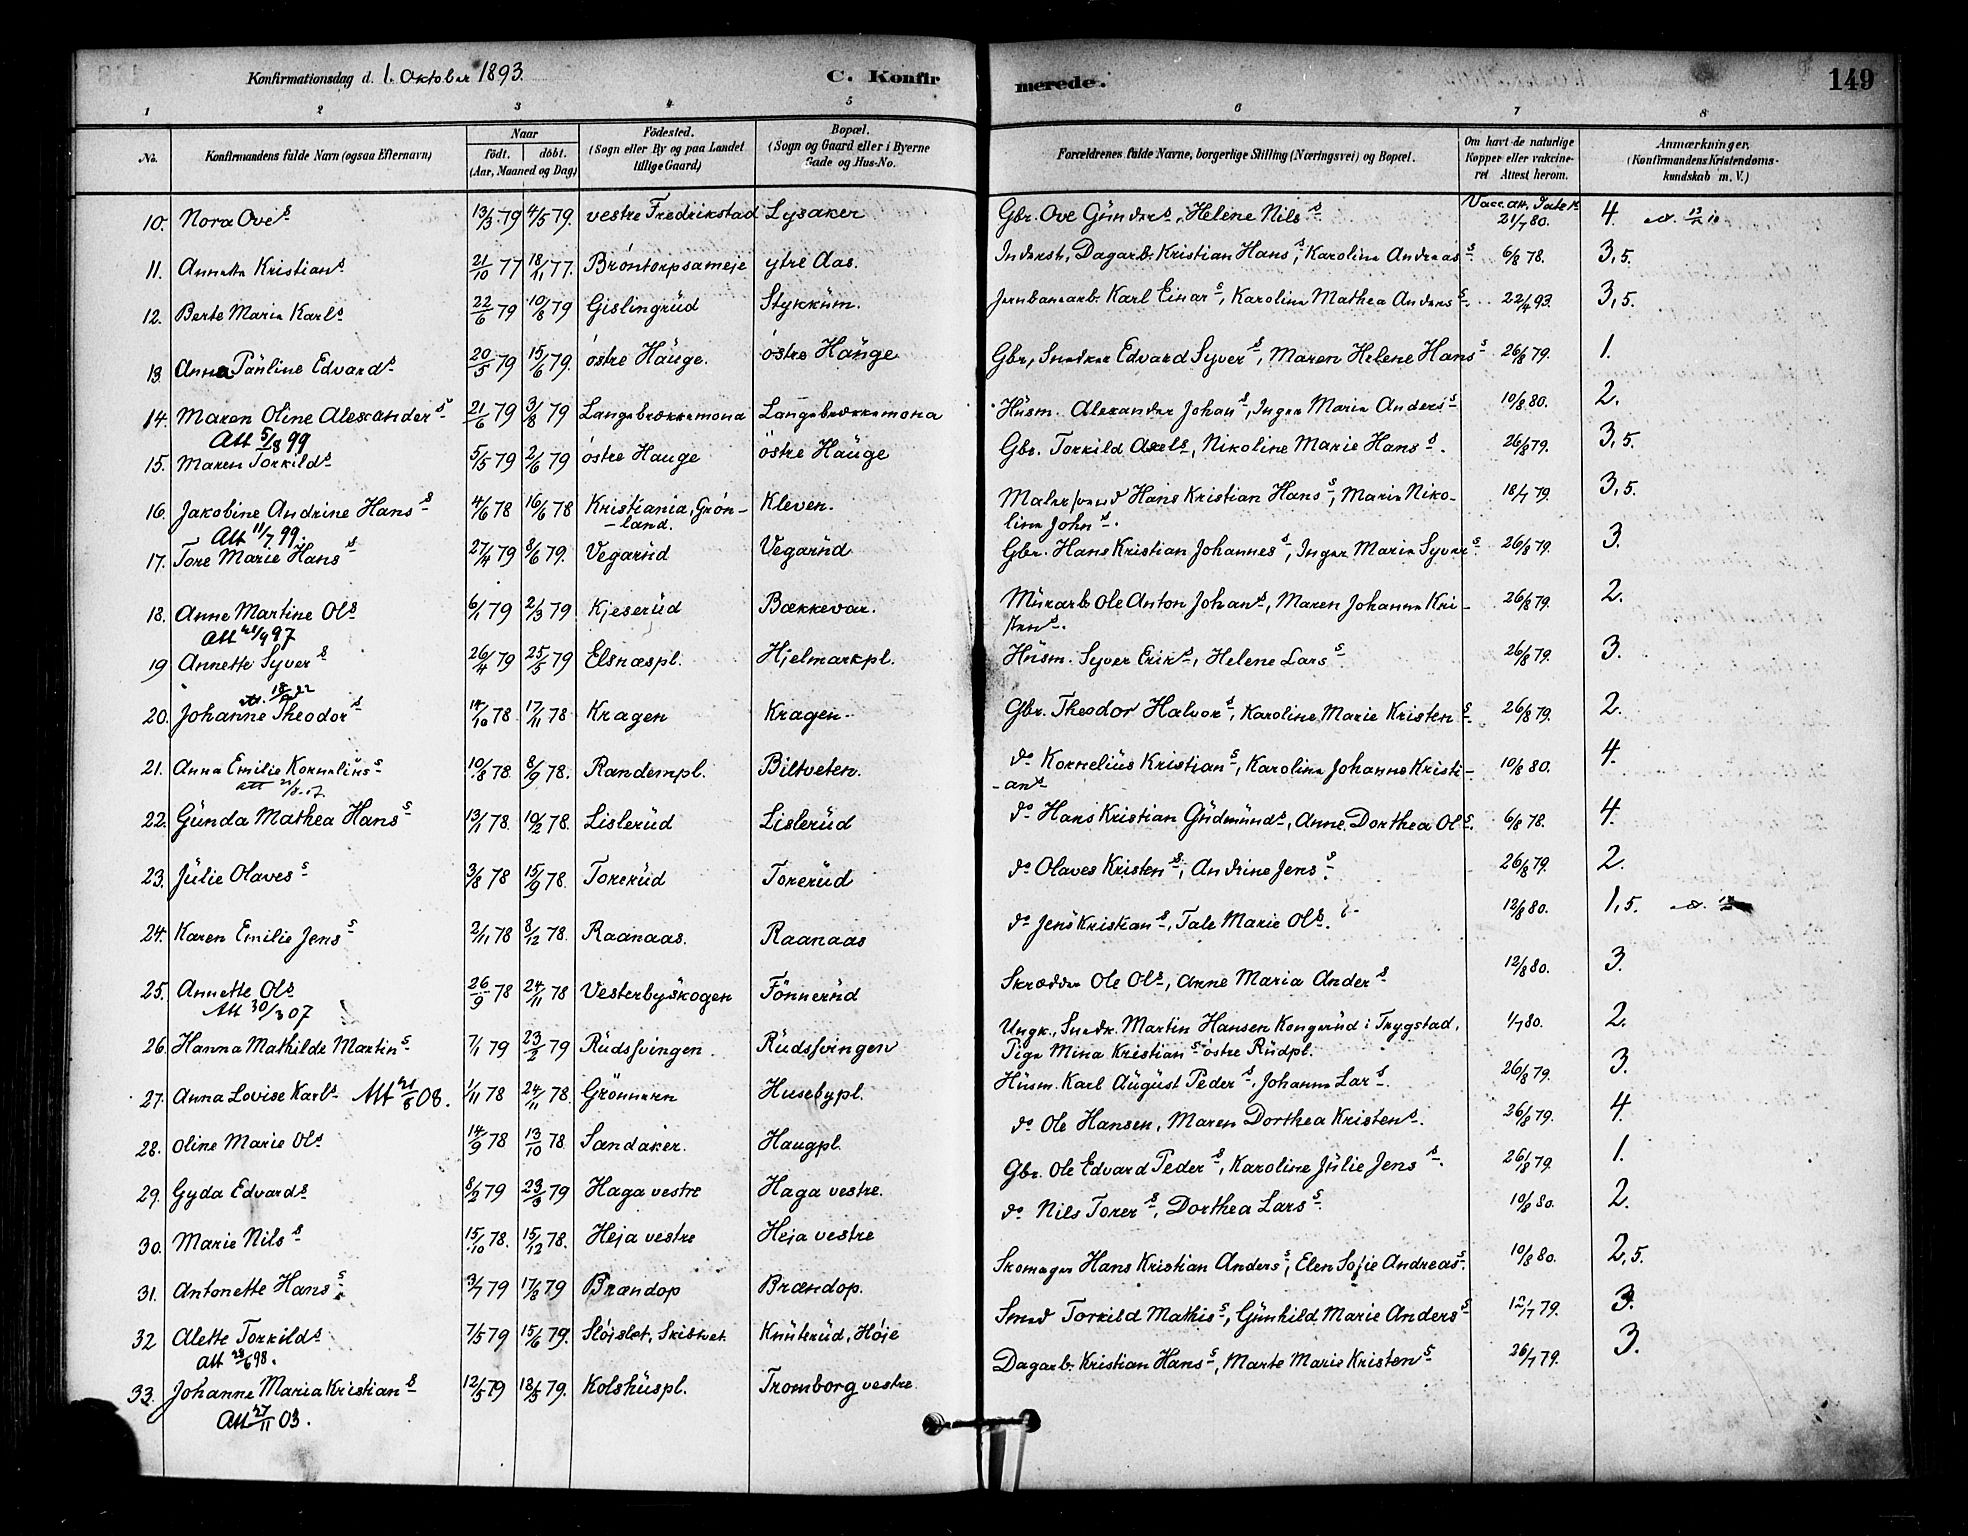 Konfirmationsdag d. 1. Oktober 1893. C. Konfirmerede. 149
1 2 3 4 5 6 7 8
No. Konfirmandens fulde Navn (ogsaa Efternavn) Naar født. døbt. (Aar, Maaned og Dag) Fødested. (Sogn eller By og paa Landet tillige Gaard) Bopæl. (Sogn og Gaard eller i Byerne Gade og Hus-No. Forældrenes fulde Navne, borgerlige Stilling (Næringsvei) og Bopæl. Om havt de naturlige Kopper eller vakcineret Attest herom. Anmærkninger. (Konfirmandens Kristendomskundskab m. V.)
10. Nora Oves 13/3 79 4/5 79. vestre Fredrikstad Lysaker Gbr. Ove Gunders, Helene Nils Vacc. att. 21/7 80. 4.
11. Annette Kristians 21/10 77 18/11 77. Brøntorpsameje ytre Aas. Inderst, Dagarb. Kristian Hans, Karoline Andreas 6/8 78. 3,5.
12. Berte Marie Karls 22/6 79 10/8 79 Gislingrud Stykkum. Jernbanearb. Karl Einars, Karoline Mathea Anders 22/4 93. 3,5.
13. Anna Pauline Edvards 20/5 79 15/6 79. østre Hauge. østre Hauge Gbr, Snedker Edvard Syvers, Maren Helene Hans 26/8 79. 1.
14. Maren Oline Alexanders 21/6 79 3/8 79 Langebrækkemona Langebrækkemona Husm. Alexander Johans, Inger Marie Anders 10/8 80. 2.
Att 5/8 99
15. Maren Torkilds 5/5 79 2/6 79 østre Hauge østre Hauge Gbr. Torkild Axels, Nikoline Marie Hans. 26/8 79. 3,5.
16. Jakobine Andrine Hans 4/6 78 16/6 78 Kristiania, Grøn- Kleven. Maler Hans Kristian Hans, Marie Niko- 18/7 79. 3,5.
-land. line Johns.
Att 11/7 99.
17. Tore Marie Hans 27/4 79 8/6 79. Vegarud Vegarud Gbr. Hans Kristian Johannes, Inger Marie Syvers. 26/8 79. 3.
18. Anne Martine Ols 6/1 79 2/3 79 Kjeserud Bækkevar. Murarb. Ole Anton Johans, Maren Johanne Kri- 26/8 79. 2.
stens.
Att 97
19 Annette Syvers 26/4 79 25/5 79 Elsnæspl. Hjelmarkpl. Husm. Syver Eriks, Helene Lars. 26/8 79. 3.
20. Johanne Theodors 14/10 78 17/11 78 Kragen Kragen. Gbr. Theodor Halvors, Karoline Marie Kristens. 26/8 79. 2.
21. Anna Emilie Kornelius 10/8 78. 8/9 78. Randempl. Biltveten. do Kornelius Kristians, Karoline Johanne Kristi- 10/8 80. 4.
-ans
22. Gunda Mathea Hans 13/1 78. 10/2 78. Lislerud Lislerud do Hans Kristian Gudmunds, Anne Dorthea Ols. 6/8 78. 4.
23. Julie Olaves 3/8 78 15/9 78. Torerud Torerud do Olaves Kristens, Andrine Jens. 26/8 79. 2.
24. Karen Emilie Jens 2/11 78 8/12 78. Raanaas. Raanaas do Jens Kristians, Tale Marie Ols. 12/8 80. 1,5.
25. Annette Ols 26/9 78 24/11 78 Vesterbyskogen Fønnerud Skrædder Ole Ols, Anne Maria Anders 12/8 80. 3.
Att 30/3 07
26. Hanna Mathilde Martins 7/1 79 23/2 79 Rudssvingen. Rudssvingen Ungk., Snedk. Martin Hansen Kongerud i Trygstad, 1/7 80. 2.
Pige Mina Kristians østre Rudpl.
27. Anna Lovise Karls Att 21/8 08. 1/11 78 24/11 78. Grønneren Husebypl. Husm. Karl August Peders, Johanne Lars. 26/8 79. 3.
28. Oline Marie Ols 14/9 78 13/10 78. Sandaker. Haugpl. do Ole Hansen, Maren Dorthea Kristens. 26/8 79. 4.
29. Gyda Edvards 8/2 79 23/3 79 Haga vestre Haga vestre. Gbr. Ole Edvard Peders, Karoline Julie Jens. 26/8 79. 1.
30. Marie Nils 15/10 78. 15/12 78. Heja vestre Heja vestre do Nils Torers, Dorthea Lars. 10/8 80. 2.
31. Antonette Hans 3/7 79 17/8 79 Brændop Brændop. Skomager Hans Kristian Anders, Elen Sofie Andreas. 10/8 80. 2,5.
32 Alette Torkilds 7/5 79 15/6 79. Sløjslet, Skistvet Knuterud, Høje Smed Torkild Mathis, Gunhild Marie Anders 12/7 79. 3.
Att 28/6 98.
33. Johanne Maria Kristians 12/5 79 18/5 79. Kolshuspl. Tromborg vestre. Dagarb. Kristian Hans, Marte Marie Kristens 26/7 79. 3.
Att 27/11 03.